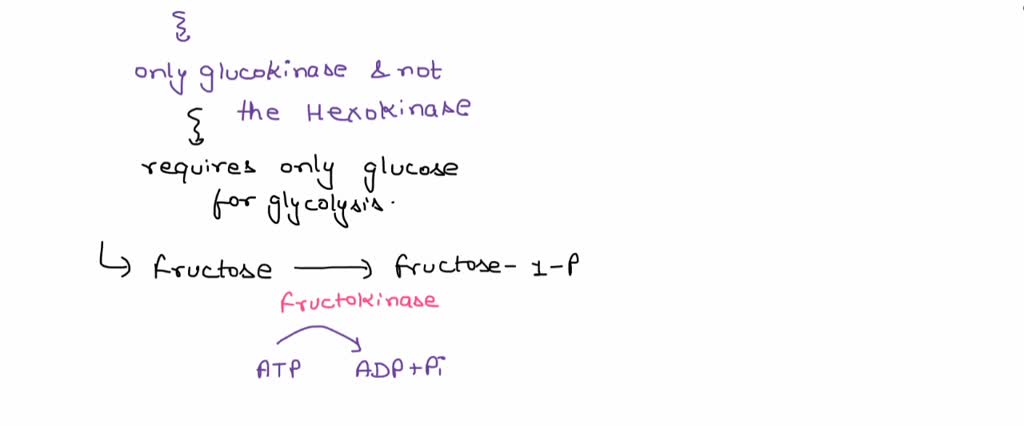 only glucokinase & not
the Hexokinase
requires only glucose
for glycolysis.
↳ fructose ⟶ fructose-1-P
fructokinase
ATP ADP+Pi